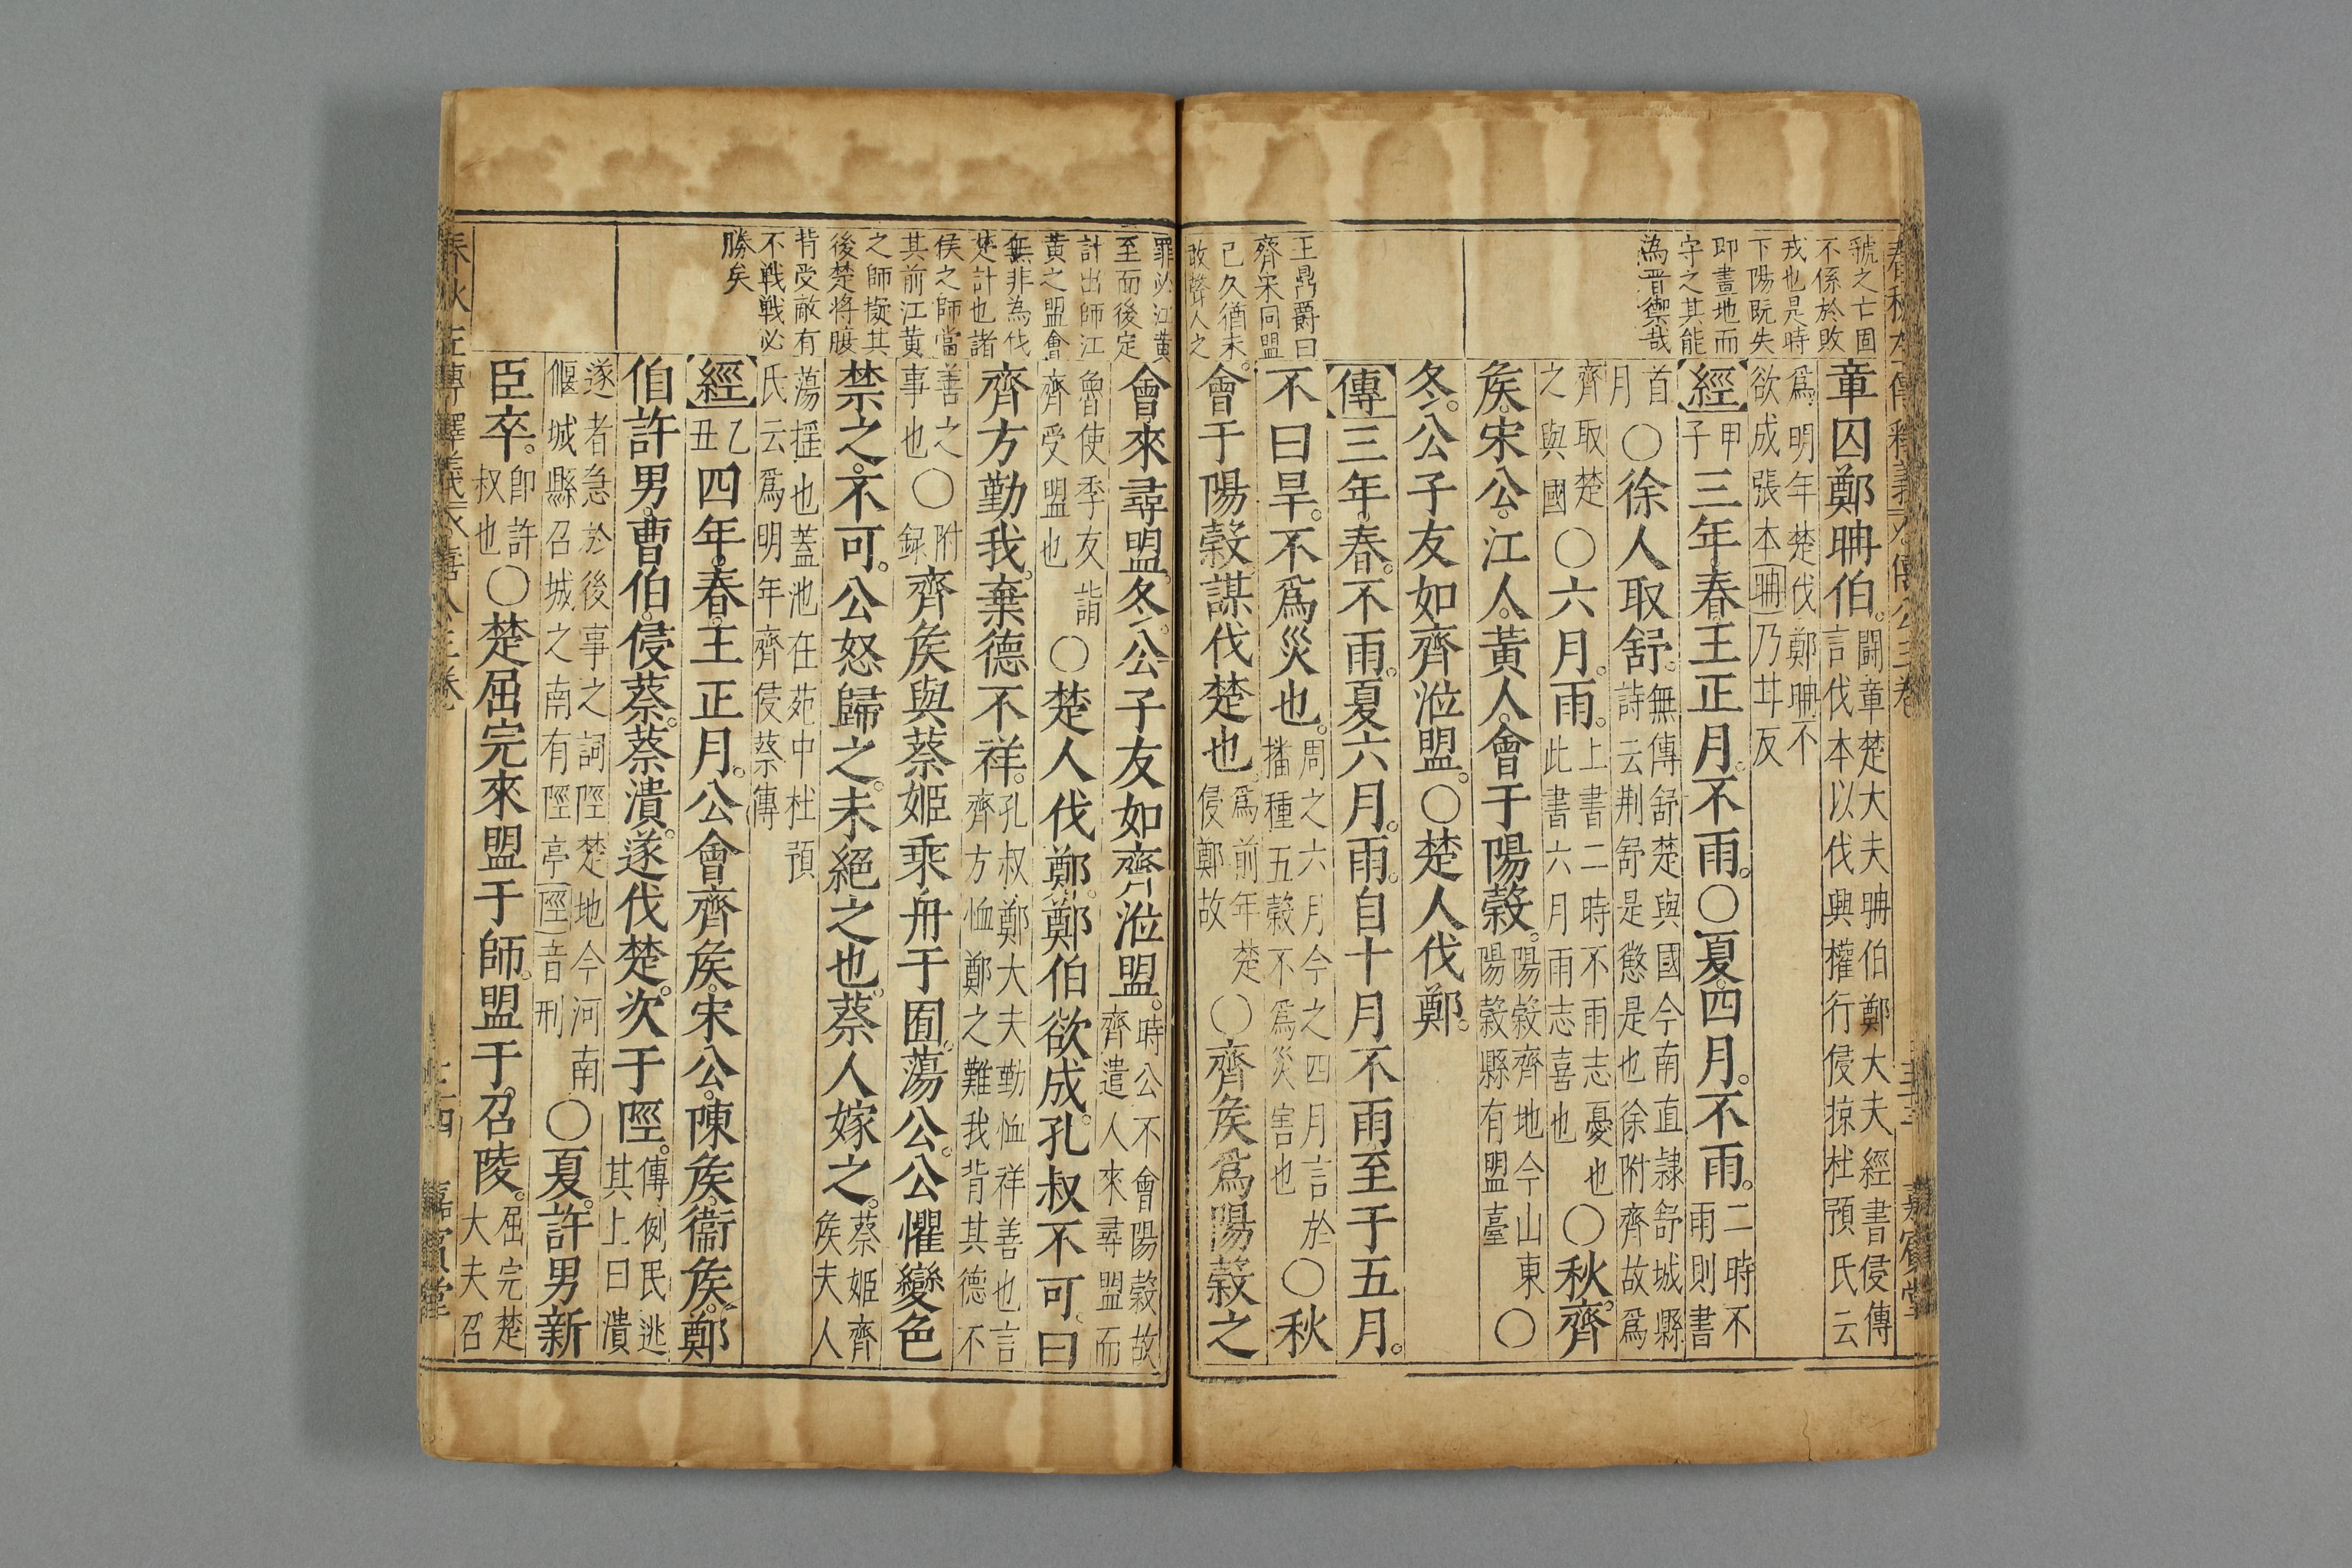 虢之亡固
不係於敗
戎也是時
下陽旣失
即畫地而
守之其能
為晋禦哉
王鼎爵曰
齊宋同盟
已久猶未
敢聲人之
章囚鄭聃伯。鬬章楚大夫聃伯鄭大夫經書侵傳言伐本以伐興權行侵掠杜預氏云
爲明年楚伐鄭聃不欲成張本聃乃甘反
經甲子三年春王正月。不雨。○夏四月。不雨。二時不雨則書
首月○徐人取舒。無傳舒楚與國今南直隷舒城縣詩云荆舒是懲是也徐附齊故爲
齊取楚之與國○六月。雨。上書二時不雨志憂也此書六月雨志喜也○秋。齊
矦。宋公。江人。黃人。會于陽穀。陽穀齊地今山東陽穀縣有盟臺○
冬。公子友如齊涖盟。○楚人伐鄭。
傳三年。春。不雨。夏六月。雨。自十月不雨至于五月。
不曰旱。不爲災也。周之六月今之四月言於播種五穀不爲災害也○秋
會于陽穀謀伐楚也。爲前年楚侵鄭故○齊矦爲陽穀之
罪必江黃
至而後定
計出師江
黃之盟會
無非為伐
楚計也諸
侯之師當
其前江黃
之師擬其
後楚將腹
背受敵有
不戰戰必
勝矣
會來尋盟。冬。公子友如齊涖盟。時公不會陽穀故齊遣人來尋盟而
魯使季友詣齊受盟也○楚人伐鄭。鄭伯欲成。孔叔不可。曰
齊方勤我。棄德不祥。孔叔鄭大夫勤恤祥善也言齊方恤鄭之難我背其德不
善之事也○附録齊矦與蔡姬乘舟于囿。蕩公。公懼變色
禁之。不可。公怒歸之。未絕之也。蔡人嫁之。蔡姬齊矦夫人
蕩搖也蓋池在苑中杜預氏云爲明年齊侵蔡傳
經乙丑四年。春。王正月。公會齊矦。宋公。陳矦。衞矦。鄭
伯許男。曹伯。侵蔡。蔡潰。遂伐楚。次于陘。傳例民逃其上曰潰
遂者急於後事之詞陘楚地今河南偃城縣召城之南有陘亭陘音刑○夏。許男新
臣卒。卽許叔也○楚屈完來盟于師。盟于。召陵。屈完楚大夫召
嘉賓堂